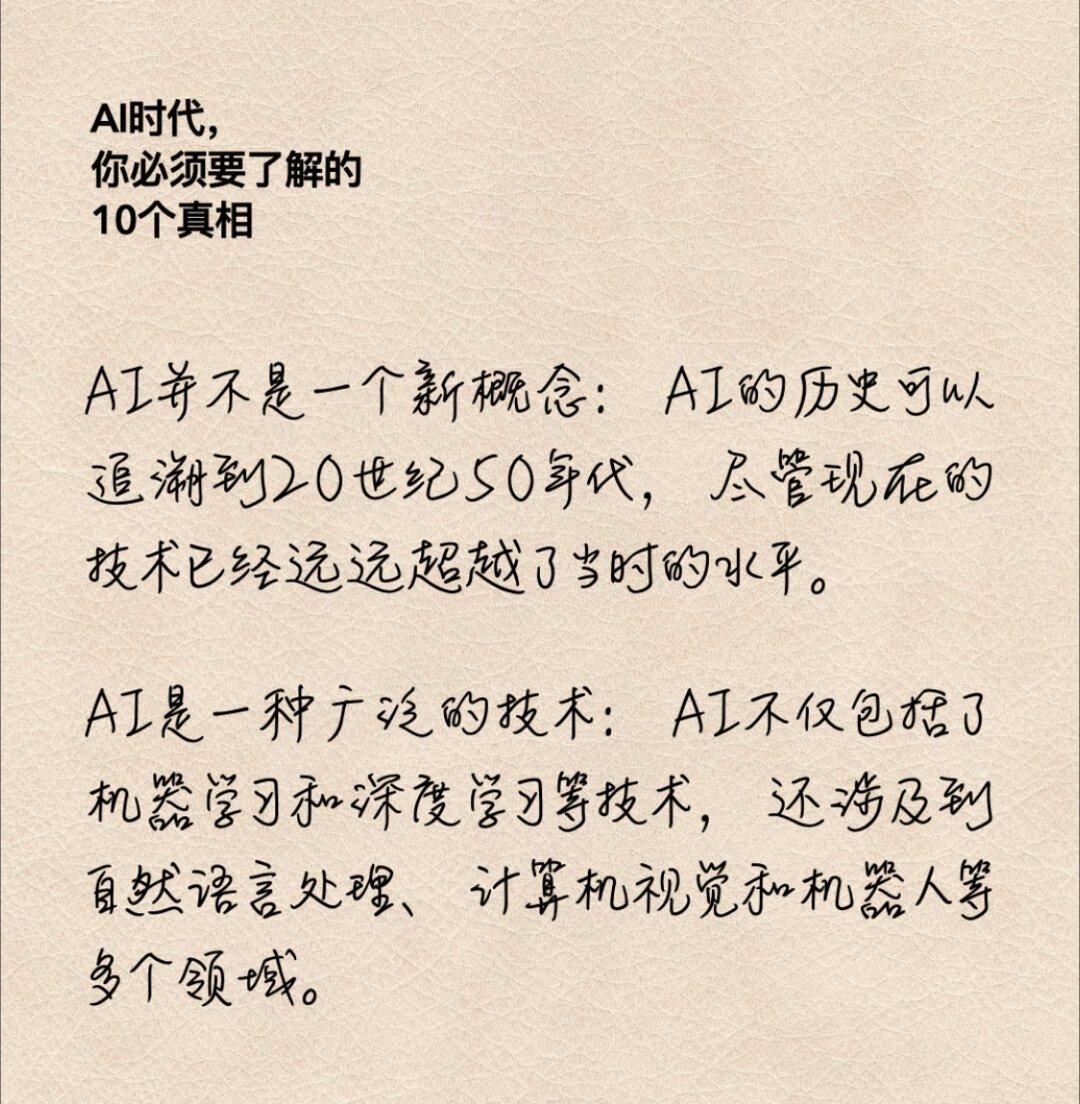 AI时代，
你必须要了解的
10个真相
AI并不是一个新概念： AI的历史可以
追溯到20世纪50年代， 尽管现在的
技术已经远远超越了当时的水平。
AI是一种广泛的技术： AI不仅包括了
机器学习和深度学习等技术， 还涉及到
自然语言处理、 计算机视觉和机器人等
多个领域。